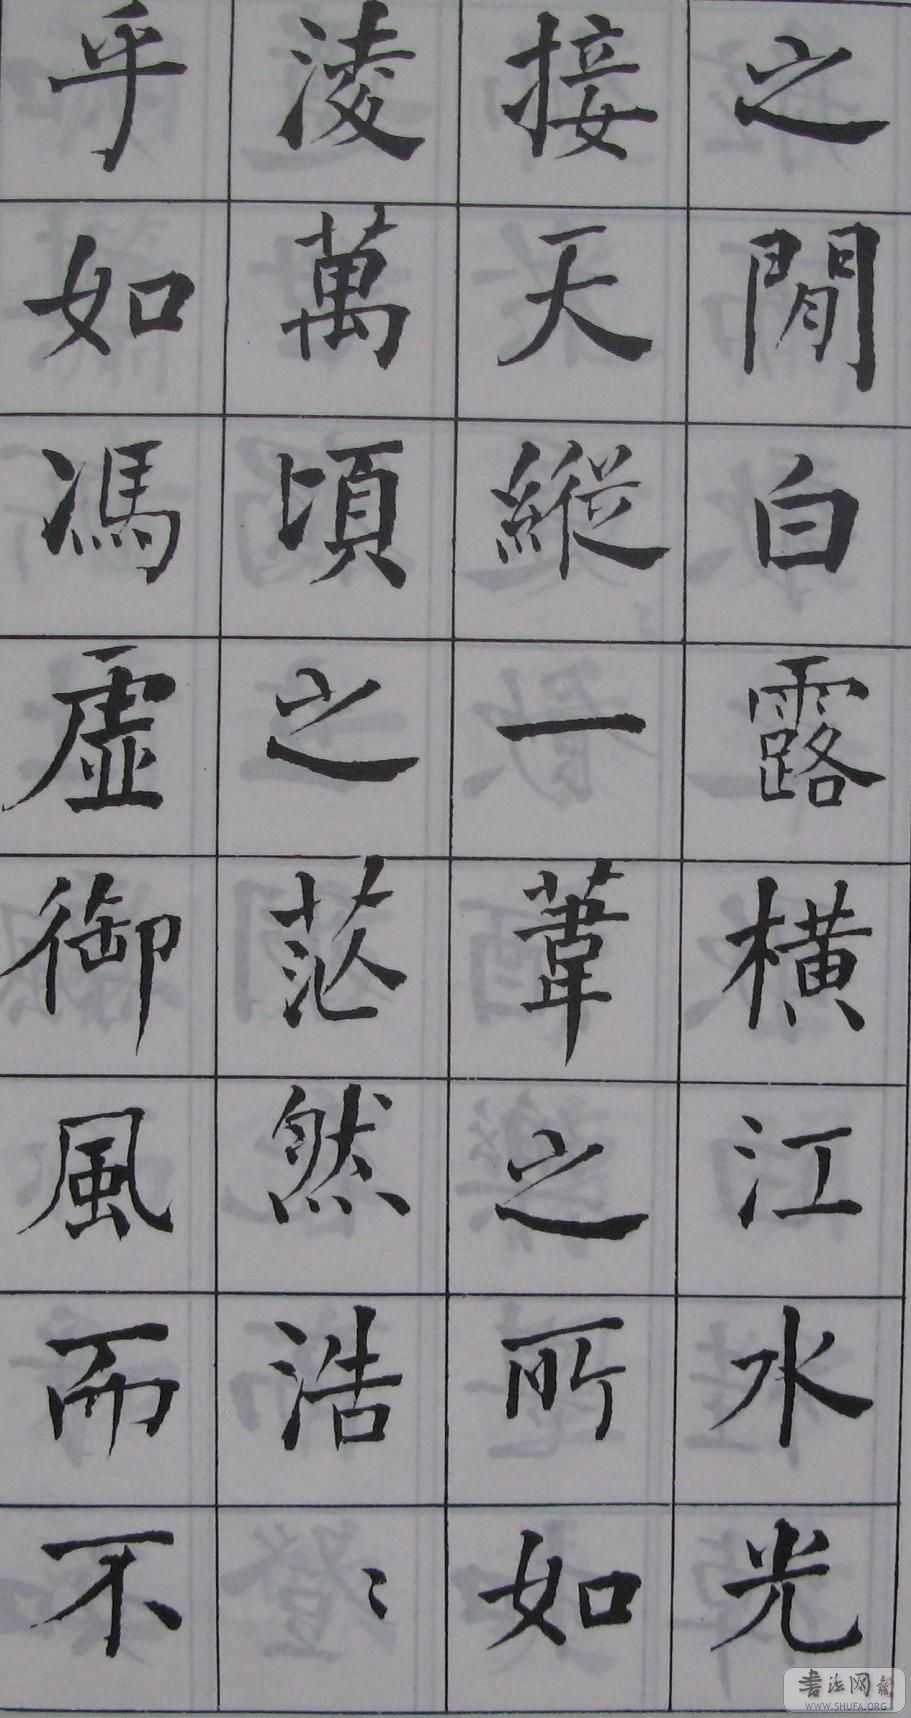 之閒白露橫江水光
接天縱一葦之所如
淩萬頃之茫然浩〻
乎如馮虛御風而不
書法网
WWW.SHUFA.ORG